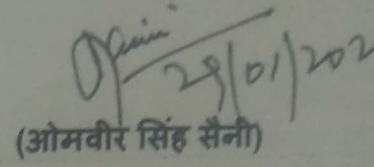 29/01/202
(ओमवीर सिंह सैनी)